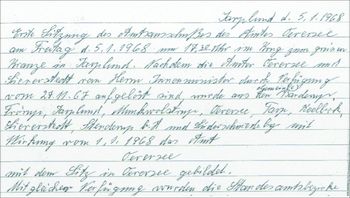 Jarplund d. 5.1.1968
Erste Sitzung des Amtsausschußes des Amtes Oversee
am Freitag d. 5.1.1968 um 17.30 Uhr im Krug zum grünen
Kranze in Jarplund. Nachdem die Ämter Oeversee und
Sieverstedt von Herrn Innenminister durch Verfügung
vom 27.11.67 aufgelöst sind, wurde aus den Gemeinden Barderup,
Frörup, Jarplund, Munkwolstrup, Oeversee, Tarp, Keelbek,
Sieverstedt, Stenderup und Süderschmedeby mit
Wirkung vom 1.1.1968 das Amt
Oeversee
mit dem Sitz in Oeversee gebildet.
Mit gleicher Verfügung wurden die Standesamtsbezirke